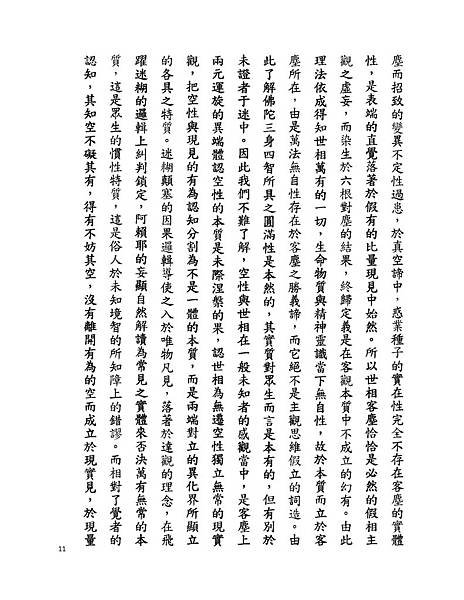 塵而招致的變異不定性過患，於真空諦中，惑業種子的實在性完全不存在客塵的實體
性，是表端的直覺落著於假有的比量現見中始然。所以世相客塵恰恰是必然的假相主
觀之虛妄，而染生於六根對塵的結果，終歸定義是在客觀本質中不成立的幻有。由此
理法依成得知世相萬有的一切，生命物質與精神靈識當下無自性，故於本質而立於客
塵所在，由是萬法無自性存在於客塵之勝義諦，而它絕不是主觀思維假立的詞造。由
此了解佛陀三身四智所具之圓滿性是本然的，其實質對眾生而言是本有的，但有別於
未證者于迷中。因此我們不難了解，空性與世相在一般未知者的感觀當中，是客塵上
兩元運旋的異端體認空性的本質是未際涅槃的果，認世相為無遷空性獨立無常的現實
觀，把空性與現見的有為認知分割為不是一體的本質，而是兩端對立的異化界所顯立
的各具之特質。迷糊顛塞的因果邏輯導使之入於唯物凡見，落著於達觀的理念，在飛
躍迷糊的邏輯上糾判鎖定，阿賴耶的妙顯自然解讀為常見之實體來否決萬有無常的本
質，這是眾生的慣性特質，這是俗人於未知境智的所知障上的錯謬。而相對了覺者的
認知，其知空不礙其有，得有不妨其空，沒有離開有為的空而成立於現實見，於現量
11